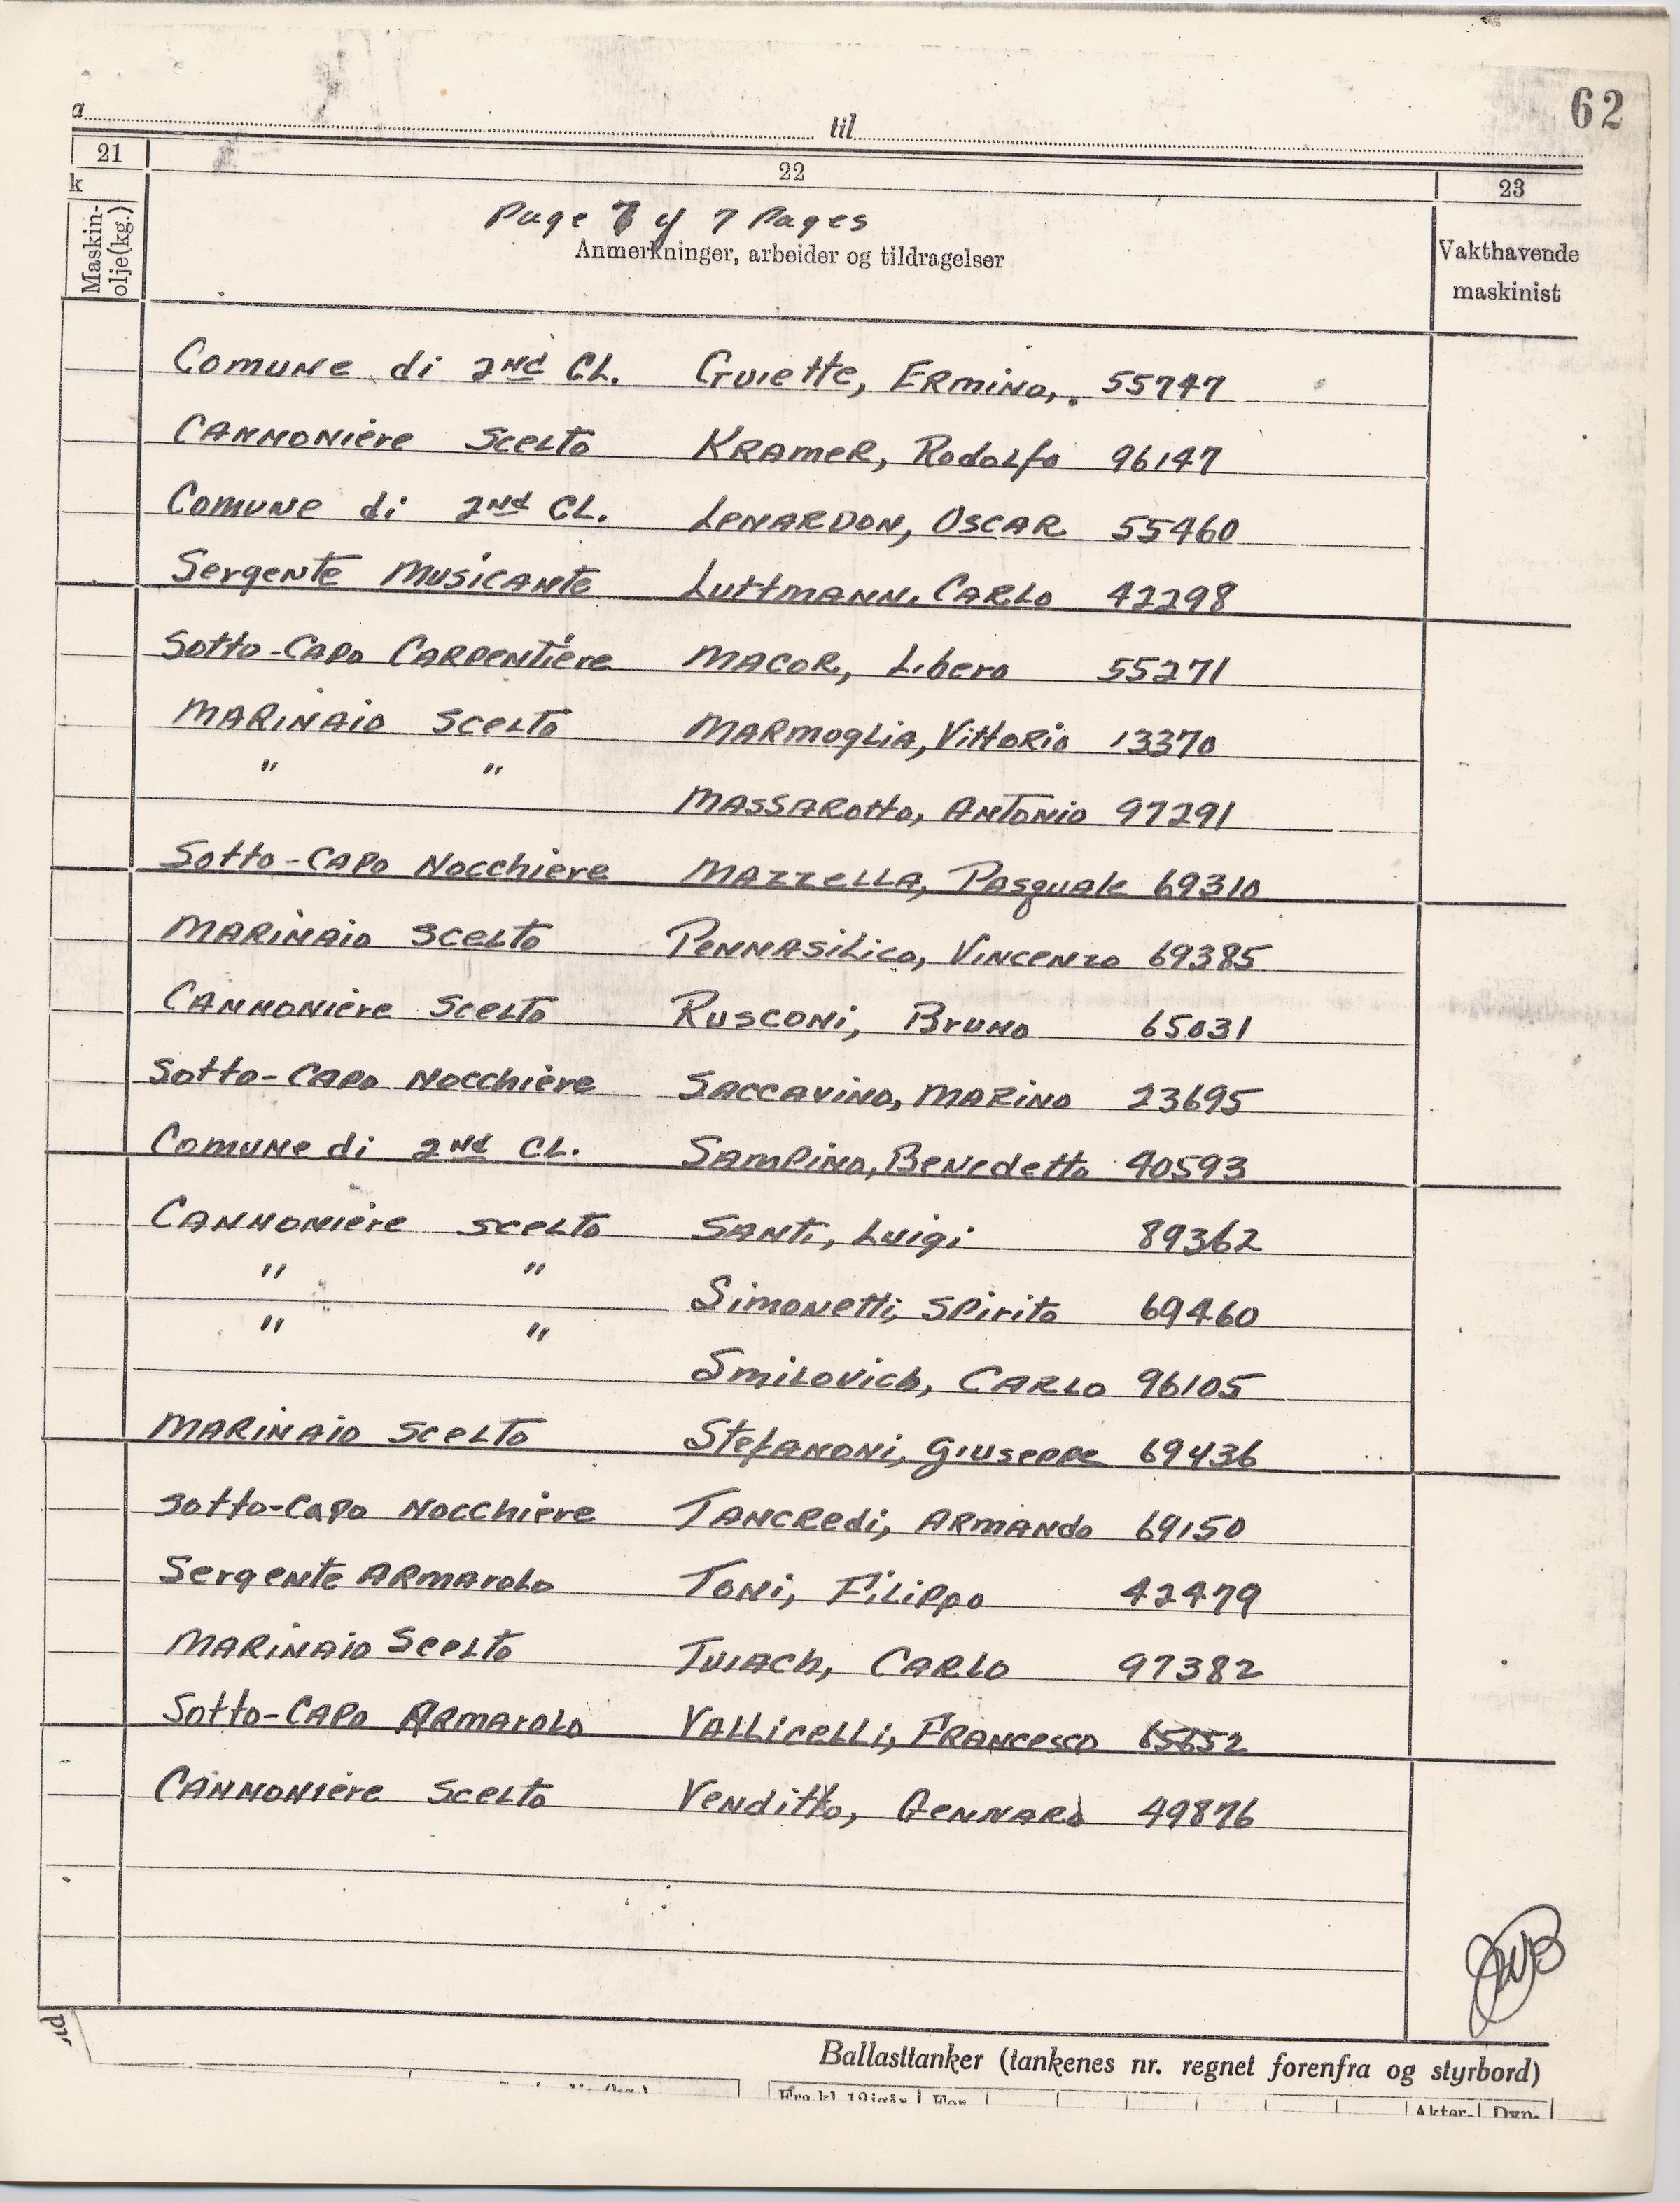 62
a til
21 22 23
k
Page 7 of 7 Pages
Maskin-
olje(kg.)
Anmerkninger, arbeider og tildragelser
Vakthavende
maskinist
Comune di 2nd CL. Guiette, Ermino, . 55747
Cannoniere Scelto Kramer, Rodolfo 96147
Comune di 2nd CL. Lenardon, Oscar 55460
Sergente Musicante Luttmann, Carlo 42298
Sotto-Capo Carpentiere Macor, Libero 55271
Marinaio Scelto Marmoglia, Vittorio 13370
" " Massarotto, Antonio 97291
Sotto-Capo Nocchiere Mazzella, Pasquale 69310
Marinaio Scelto Pennasilico, Vincenzo 69385
Cannoniere Scelto Rusconi, Bruno 65031
Sotto-Capo Nocchiere Saccavino, Marino 23695
Comune di 2nd CL. Sampino, Benedetto 40593
Cannoniere Scelto Santi, Luigi 89362
" " Simonetti, Spirito 69460
" " Smilovich, Carlo 96105
Marinaio Scelto Stefanoni, Giuseppe 69436
Sotto-Capo Nocchiere Tancredi, Armando 69150
Sergente Armarolo Toni, Filippo 42479
Marinaio Scelto Tuiach, Carlo 97382
Sotto-Capo Armarolo Vallicelli, Francesco 65652
Cannoniere Scelto Venditto, Gennaro 49876
Ballasttanker (tankenes nr. regnet forenfra og styrbord)
Fra kl. 12 igår For
Akter- Dyp-